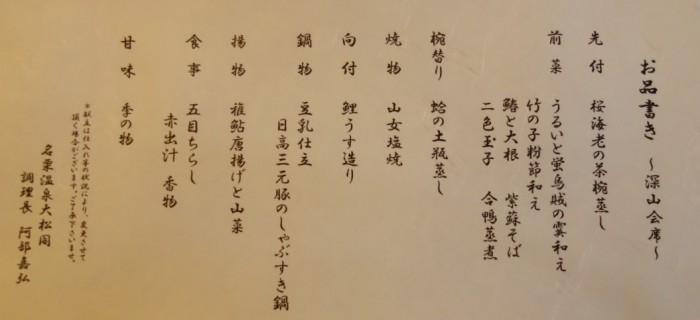 お品書き ～深山会席～
先付 桜海老の茶椀蒸し
前菜 うるいと蛍烏賊の霙和え
竹の子粉節和え 紫蘇そば
鰆と大根
二色玉子 合鴨蒸煮
椀替り 蛤の土瓶蒸し
焼物 山女塩焼
向付 鯉うす造り
鍋物 豆乳仕立
日高三元豚のしゃぶすき鍋
揚物 稚鮎唐揚げと山菜
食事 五目ちらし
赤出汁 香物
甘味 季の物
＊献立は仕入れ等の状況により、変更させて
頂く場合がございます。ご了承下さいませ。
名栗温泉大松閣
調理長 阿部嘉弘